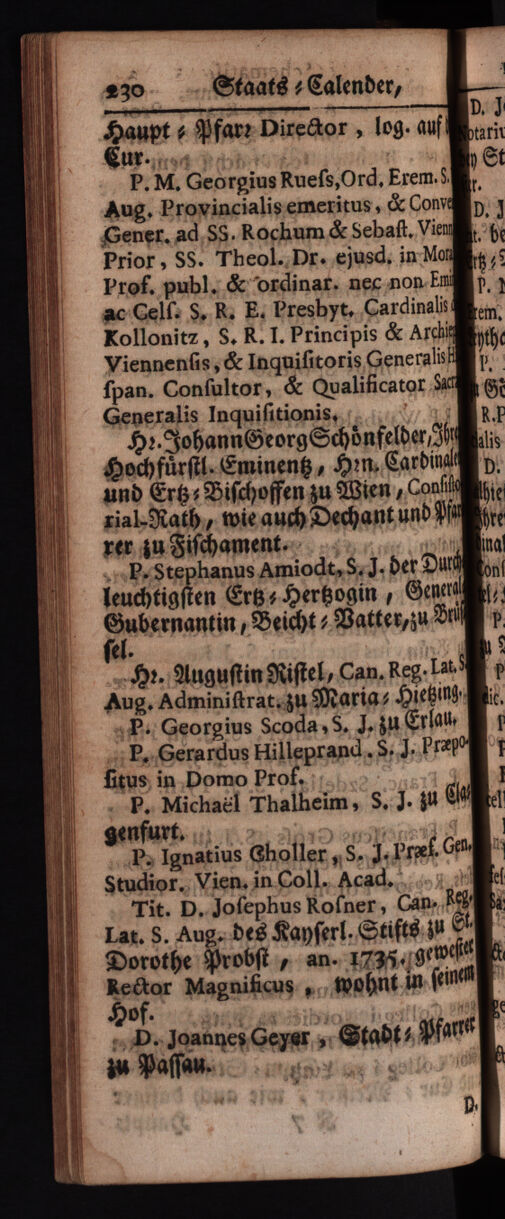 230 Staats⸗Calender,
Haupt⸗Pfarr Director, log. auf
Cur.
P. M. Georgius Ruess, Ord. Erem. S.
Aug. Provincialis emeritus, & Conve
Gener. ad SS. Rochum & Sebast. Vienn
Prior, SS. Theol. Dr. ejusd. in Mor
Prof. publ. & ordinar. nec non Emi
ac Cels. S. R. E. Presbyt. Cardinalis
Kollonitz, S. R. I. Principis & Archie
Viennensis, & Inquisitoris Generalis H
span. Consultor, & Qualificator Sacr
Generalis Inquisitionis.
Hr. Johann Georg Schönfelder, Ihr
Hochfürstl. Eminentz, Hrn. Cardinale
und Ertz⸗Bischoffen zu Wien, Consisto
rial-Rath, wie auch Dechant und Pfar
rer zu Fischament.
P. Stephanus Amiodt, S. J. der Durch
leuchtigsten Ertz⸗Hertzogin, General
Gubernantin, Beicht⸗Vatter, zu Brüs
sel.
Hr. Augustin Ristel, Can. Reg. Lat. S.
Aug. Administrat. zu Maria⸗Hietzing.
P. Georgius Scoda, S. J. zu Erlau.
P. Gerardus Hilleprand. S. J. Præpo-
situs in Domo Prof.
P. Michaël Thalheim, S. J. zu Cla⸗
genfurt.
P. Ignatius Choller, S. J. Præf. Gen.
Studior. Vien. in Coll. Acad.
Tit. D. Josephus Rosner, Can. Reg.
Lat. S. Aug. des Kayserl. Stifts zu St.
Dorothe Probst, an. 1735. gewester
Rector Magnificus, wohnt in seinem
Hof.
D. Joannes Geyer, Stadt⸗Pfarrer
zu Passau.
D.